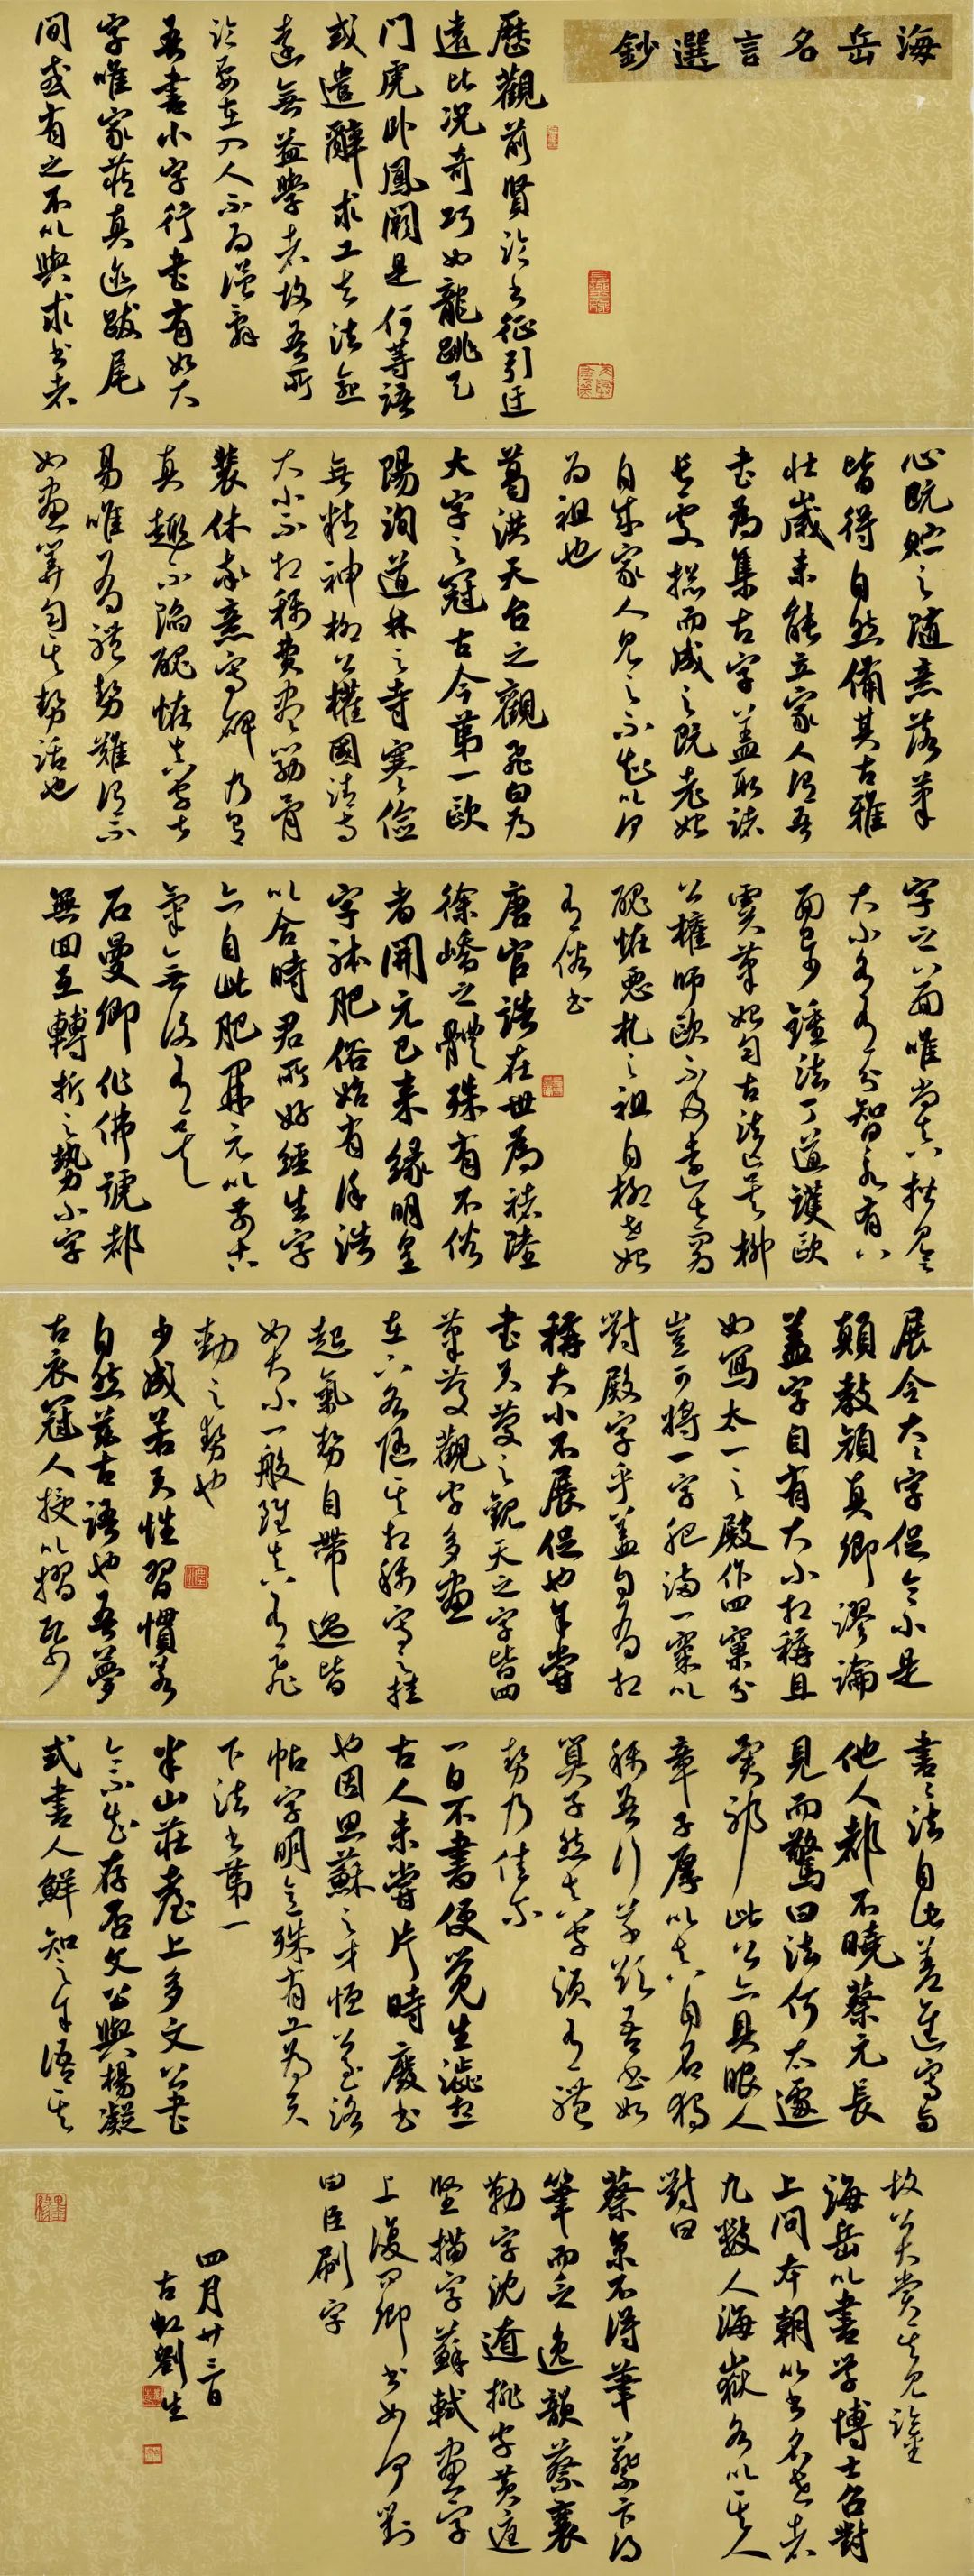 海岳名言選鈔
歷觀前賢論書征引迂
遠比況奇巧如龍跳天
门虎卧鳳闕是何等語
或遣辭求工去法逾
遠無益學者故吾所
论要在入人不為溢辭
吾書小字行書有如大
字唯家藏真迹跋尾
间或有之不以與求书者
心既贮之随意落筆
皆得自然備其古雅
壮歲未能立家人谓吾
書為集古字盖取诸
长處揔而成之既老始
自成家人見之不知以何
为祖也
葛洪天台之觀飛白为
大字之冠古今第一歐
陽詢道林之寺寒俭
無精神柳公權國清寺
大小不相稱費盡筋骨
裴休率意寫碑乃有
真趣不陷醜怪真字甚
易唯有體勢難谓不
如畫筭勻其勢活也
字之八面唯尚真楷見之
大小各有分智永有八
面已少鍾法丁道護歐
虞筆始勻古法亡矣柳
公權師歐不及遠甚而为
醜怪惡札之祖自柳世始
有俗书
唐官誥在世為褚陸
徐嶠之體殊有不俗
者開元已来缘明皇
字體肥俗始有徐浩
以合時君所好經生字
亦自此肥開元以前古
氣無復有矣
石曼卿作佛號都
無回互轉折之勢小字
展令大大字促令小是
顛教顏真卿謬論
盖字自有大小相稱且
如寫太一之殿作四窠分
豈可將一字肥滿一窠以
對殿字乎盖自有相
稱大小不展促也余嘗
書天慶之觀天之字皆四
筆慶觀字多畫
在下各随其相稱寫之挂
起氣勢自带過皆
如大小一般雖真有飛
動之勢也
少成若天性習慣若
自然兹古語也吾夢
古衣冠人授以摺纸
書書法自此差進寫与
他人都不曉蔡元長
見而驚曰法何太遽
異耶此公亦具眼人
章子厚以真自名独
稱吾行草欲吾书如
筭子然真字须有體
勢乃佳尔
一日不書便覺生澁想
古人未嘗片時廢书
也因思蘇之才恒公至洛
帖字明意殊有工為天
下法书第一
半山莊臺上多文公書
今不知存否文公與楊凝
式書人鮮知之余语其
故公大賞其見鉴
海岳以書学博士召對
上问本朝以书名世者
九數人海嶽各以其人
對曰
蔡京不得筆蔡卞得
筆而乏逸韻蔡襄
勒字沈遼排字黄庭
堅描字蘇軾畫字
上復问卿书如何對
曰臣刷字
四月廿三日
古虹劉生